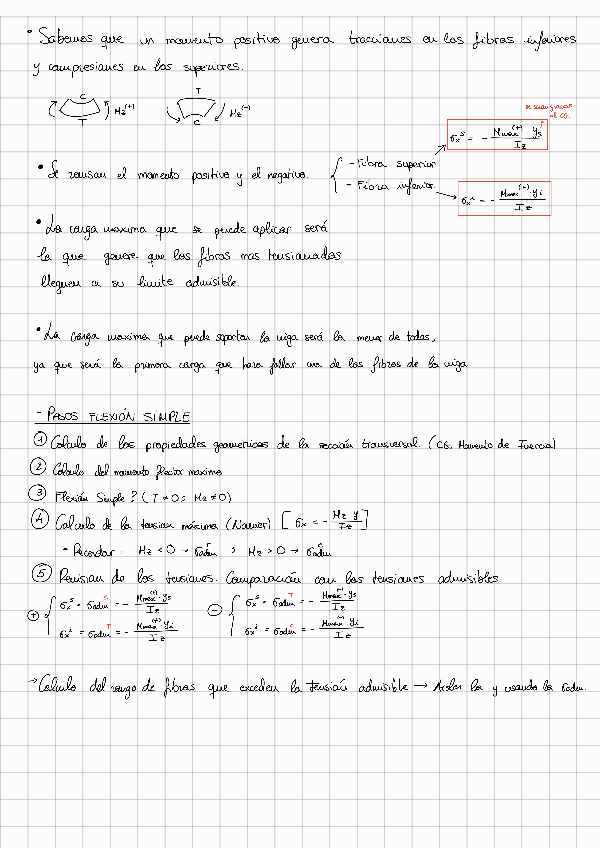 • Sabemos que un momento positivo genera tracciones en las fibras inferiores
y compresiones en las superiores.
C T Mz(+) T C Mz(-)
se suang ricas al CG.
σx^s = - Mmax(+) · ys / Iz
• Se revisan el momento positivo y el negativo. { - Fibra superior
- Fibra inferior
σx^i = - Mmax(+) · yi / Iz
• La carga maxima que se puede aplicar será
la que genere que las fibras mas tensionadas
lleguen a su limite admisible.
• La carga maxima que puede soportar la viga será la menor de todas,
ya que será la primera carga que hara fallar una de las fibras de la viga
- PASOS FLEXIÓN SIMPLE
① Calculo de las propiedades geometricas de la sección transversal. (CG, Momento de Inercia)
② Calculo del momento flector maximo
③ Flexión Simple? (T ≠ 0; Mz ≠ 0)
④ Calculo de la tension máxima (Navier) [σx = - Mz · y / Iz]
- Recordar: Mz < 0 → σadm^T ; Mz > 0 → σadm^c
⑤ Revision de las tensiones. Comparación con las tensiones admisibles
⊕ { σx^s = σadm^c = - Mmax(+) · ys / Iz ⊖ { σx^s = σadm^T = - Mmax(-) · ys / Iz
σx^i = σadm^T = - Mmax(+) · yi / Iz σx^i = σadm^c = - Mmax(-) · yi / Iz
→ Calculo del rango de fibras que exceden la tensión admisible → las y usando la σadm.